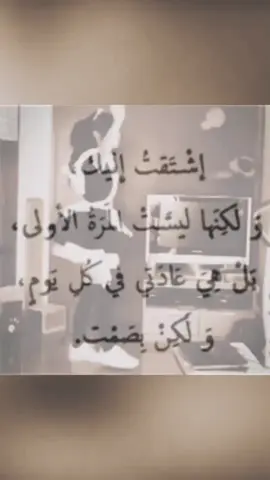 إشْتَقتُ إليكَ،
وَ لَكِنَها ليسَتْ المرَةَ الأولى،
بَلْ هِيَ عَادَتي في كُلِ يَومٍ،
وَ لَكِنْ بِصَمْت.